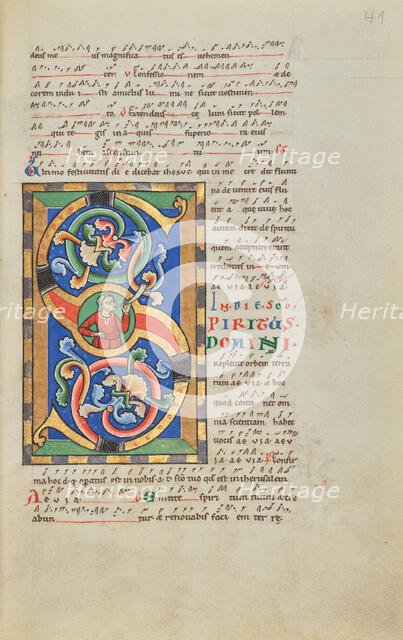 41
deus me us magnifica tus es uehemen
ter ℣ Confessio nem & de
corem indu isti amictus lu mi ne sicut uestimen
to ℣ Extendens ce lum sicut pel lem
qui te gis in a quis superi o ra eius
Ultimo festiuitatis di e dicebat ihesus qui in me cre dit flumi
na de uentre eius flu
ent a que uiue hoc
autem dixit de spiritu
quem accepturi erant
credentes in e um
IN DIE SCO
PIRITUS
DOMINI
Repleuit orbem terra
rum ae v ia ae & hoc
quod conti net om
nia scientiam habet
uocis ae v ia ae v
ia ae v ia ae v ia Confir
ma hoc deus quod operatus est in nobis a templo sco tuo quod est in iherusalem
A E v ia Emitte spiri tum tuum & cre
abun tur & renouabis faci em ter re
Heritage
Heritage
Heritage
Heritage
Heritage
Heritage
Heritage